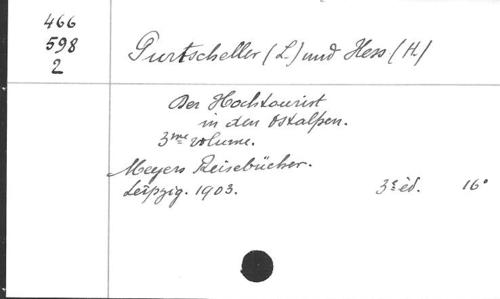 466
598
2
Purtscheller (L.) und Hess (H)
Der Hochtourist
in den Ostalpen.
3me volume.
Meyers Reisebücher.
Leipzig. 1903. 3e éd. 16°